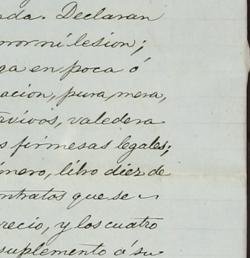 nda. Declaran
error ni lesion;
ga en poca ó
acion, pura, mera,
ravivos, valedera
s firmesas legales;
imero, libro diez de
ontratos que se
recio, y los cuatro
suplemento á su